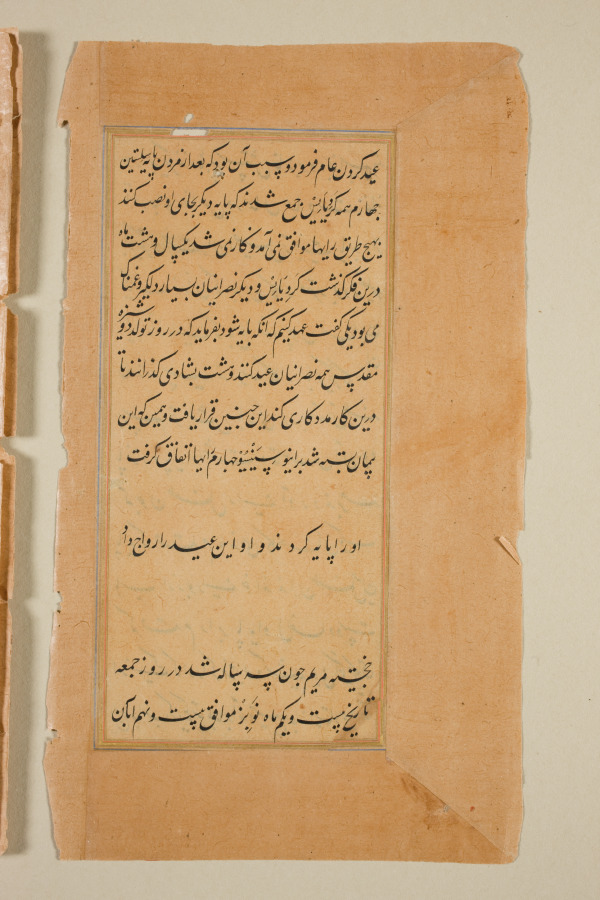 عید کردن عام فرمود و سبب آن بود که بعد از مردن پاپه سیلستین
چهارم همه کردیاریس جمع شدند که پاپه دیگر بجای او نصب کنند
بهیچ طریق رایها موافق نمی آمد و کار نمی شد یکسال و هشت ماه
درین فکر گذشت کردیاریس و دیگر نصرانیان بسیار دلگیر و غمناک
می بود یکی گفت عهد کنیم که آنکه پاپه شود بفرماید که در روز تولد دوشیزه
مقدس همه نصرانیان عید کنند و هشت بشادی گذرانند تا
درین کار مددکاری کند این چنین قرار یافت و همین که این
پیمان بسته شد براینوسینسیو چهارم رایها اتفاق گرفت
او را پاپه کردند و او این عید را رواج داد
خجسته مریم چون سه ساله شد در روز جمعه
تاریخ بیست و یکم ماه نوبر موافق بیست و نهم آبان